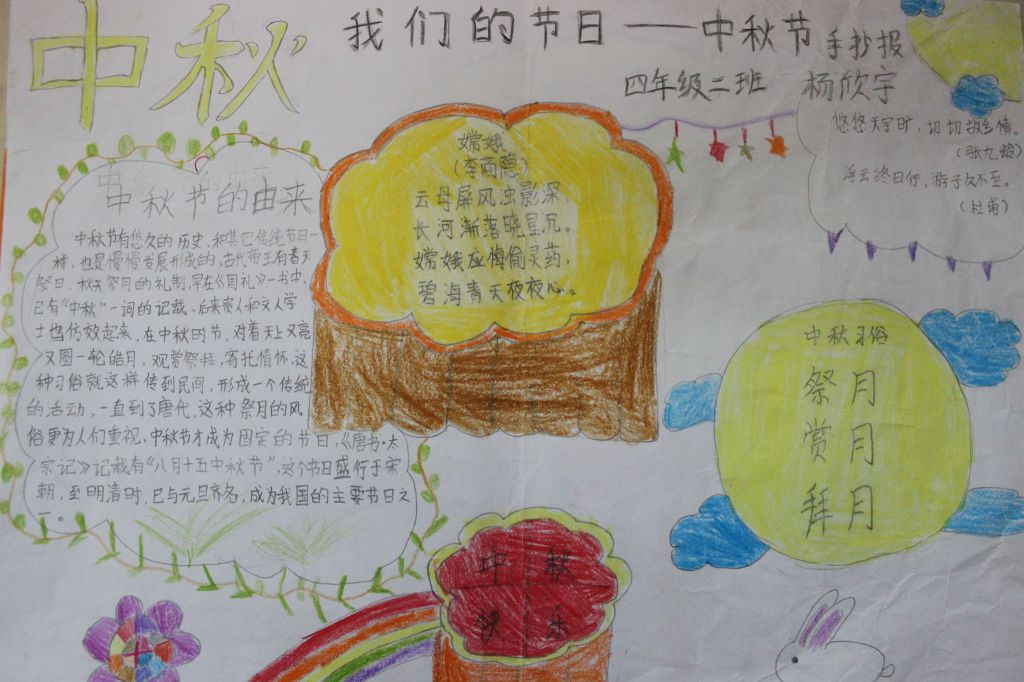 中秋
我们的节日——中秋节手抄报
四年级二班 杨欣宇
中秋节的由来
中秋节有悠久的历史,和其它传统节日一
样,也是慢慢发展形成的,古代帝王有春天
祭日,秋天祭月的礼制,早在《周礼》一书中,
已有“中秋”一词的记载。后来贵人和文人学
士也仿效起来,在中秋的节,对着天上又亮
又圆一轮皓月,观赏祭拜,寄托情怀,这
种习俗就这样传到民间,形成一个传统
的活动,一直到了唐代,这种祭月的风
俗更为人们重视,中秋节才成为固定的节日,《唐书·太
宗记》记载有“八月十五中秋节”,这个节日盛行于宋
朝,至明清时,已与元旦齐名,成为我国的主要节日之
一。
嫦娥
(李商隐)
云母屏风浊影深,
长河渐落晓星沉。
嫦娥应悔偷灵药,
碧海青天夜夜心。
悠悠天宇旷,切切故乡情。
(张九龄)
浮云终日行,游子久不至。
(杜甫)
中秋习俗
祭月
赏月
拜月
中秋
快乐